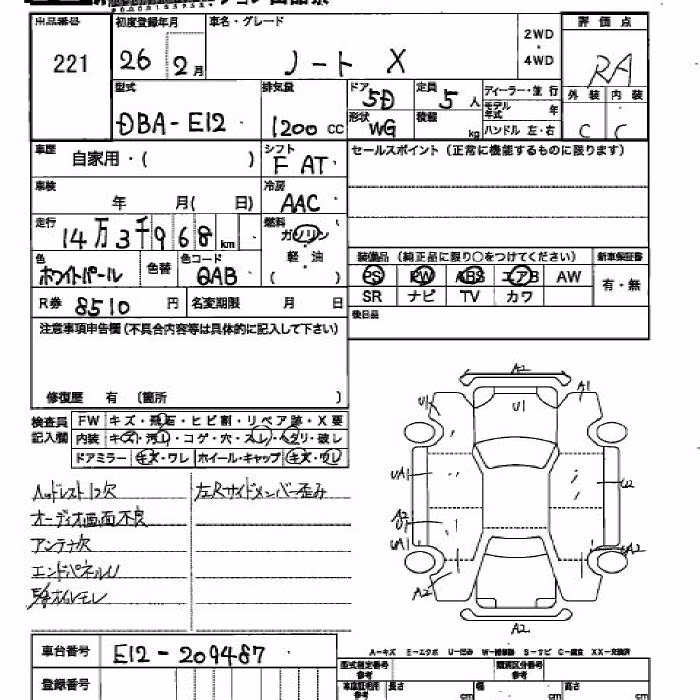 出品番号 初度登録年月 車名・グレード 2WD・4WD 評価点
221 26 2月 ノート X RA
型式 排気量 ドア 5D 定員 5人 ディーラー・並行 外装 内装
DBA-E12 1200cc 形状 WG 積載 kg モデル年式 年 C C
ハンドル 左・右
車歴 自家用・( ) シフト F AT セールスポイント(正常に機能するものに限ります)
車検 年 月( 日) 冷房 AAC
走行 14万3千968km 燃料 ガソリン・軽油 ( )
色 ホワイトパール 色替 色コード QAB
装備品(純正品に限り○をつけてください) 新車保証書
PS PW ABS エアB AW 有・無
SR ナビ TV カワ
R券 8510円 名変期限 月 日
後日品
注意事項申告欄(不具合内容等は具体的に記入して下さい)
修復歴 有 (箇所 )
検査員記入欄 FW キズ・飛石・ヒビ割・リペア跡・X要
内装 キズ・汚レ・コゲ・穴・スレ・ヘタリ・破レ
ドアミラー キズ・ワレ ホイール・キャップ キズ・ワレ
ヘッドレスト1ヶ欠 左Rサイドメンバー歪み
オーディオ画面不良
アンテナ欠
エンドパネルU
A2
U1 A1
U1
UA1 U2
A2
U1
UA1 A2
A2
A2
A-キズ E-エクボ U-凹み W-補修跡 S-サビ C-腐食 XX-交換済
車台番号 E12-209487
型式指定番号 参考 類別区分番号 参考
登録番号 車庫証明用 参考 長さ cm 幅 cm 高さ cm